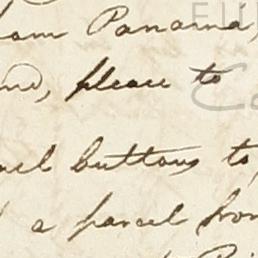 am Panama,
and, please to
buttons to
a parcel from